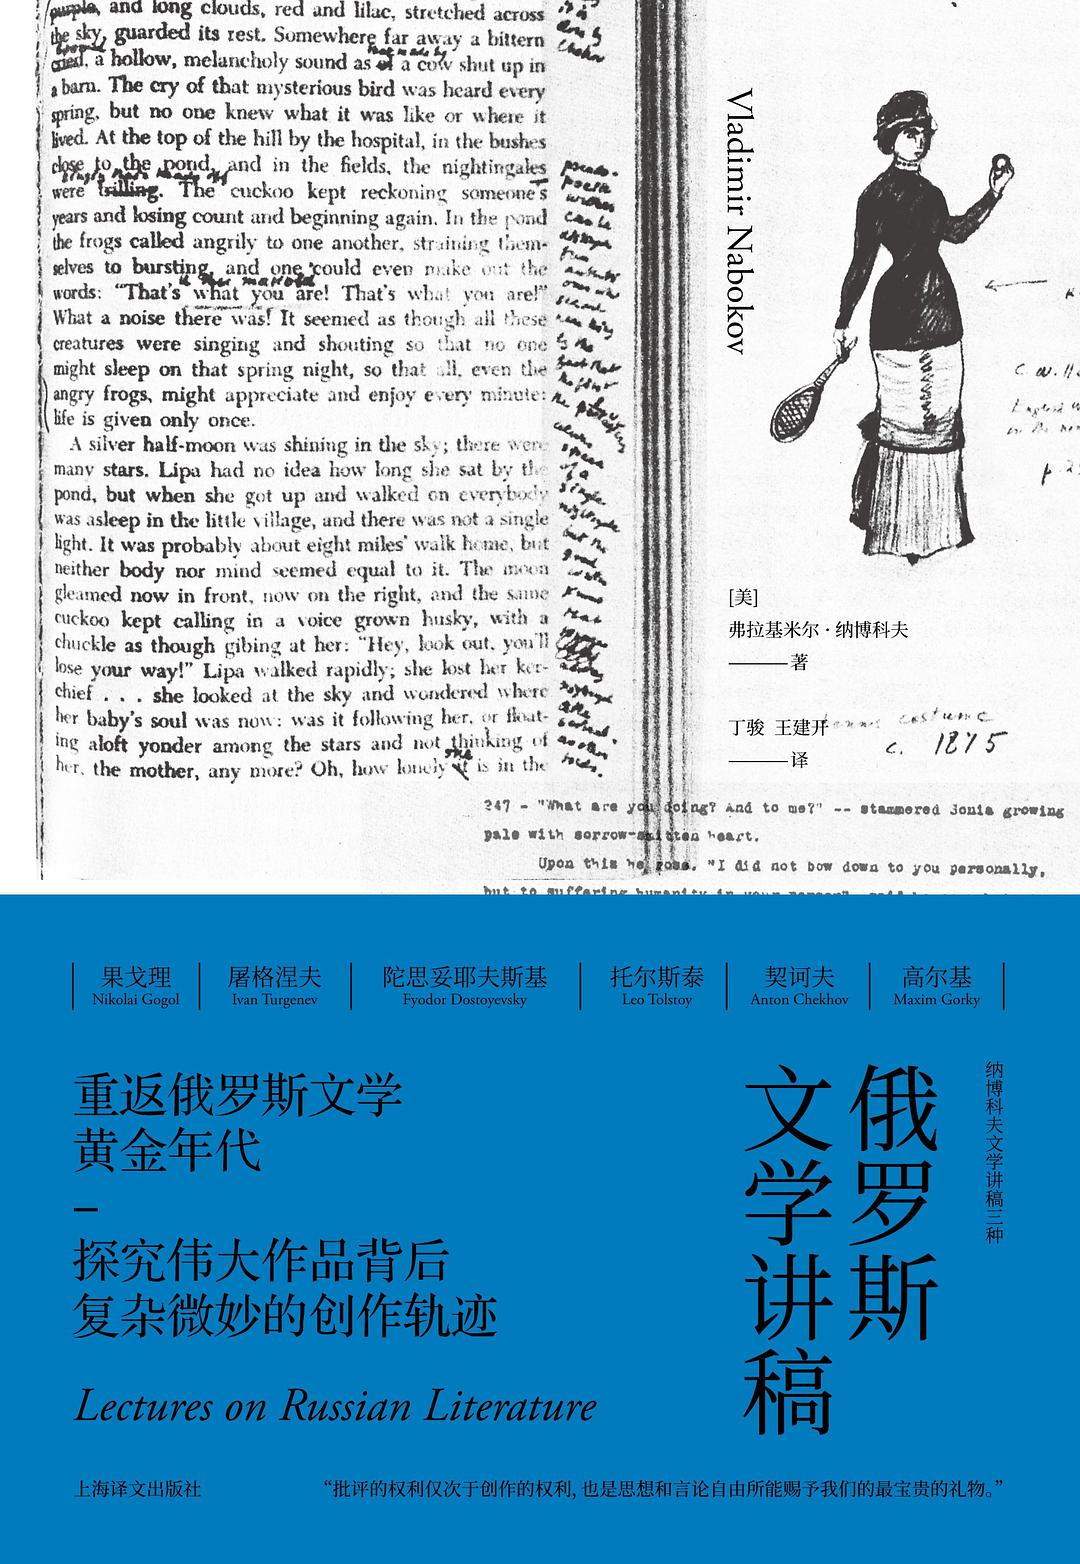 purple, and long clouds, red and lilac, stretched across
the sky, guarded its rest. Somewhere far away a bittern
cried, a hollow, melancholy sound as of a cow shut up in
a barn. The cry of that mysterious bird was heard every
spring, but no one knew what it was like or where it
lived. At the top of the hill by the hospital, in the bushes
close to the pond, and in the fields, the nightingales
were trilling. The cuckoo kept reckoning someone's
years and losing count and beginning again. In the pond
the frogs called angrily to one another, straining them-
selves to bursting, and one could even make out the
words: “That's what you are! That's what you are!”
What a noise there was! It seemed as though all these
creatures were singing and shouting so that no one
might sleep on that spring night, so that all, even the
angry frogs, might appreciate and enjoy every minute:
life is given only once.
A silver half-moon was shining in the sky; there were
many stars. Lipa had no idea how long she sat by the
pond, but when she got up and walked on everybody
was asleep in the little village, and there was not a single
light. It was probably about eight miles' walk home, but
neither body nor mind seemed equal to it. The moon
gleamed now in front, now on the right, and the same
cuckoo kept calling in a voice grown husky, with a
chuckle as though gibing at her: “Hey, look out, you'll
lose your way!” Lipa walked rapidly; she lost her ker-
chief . . . she looked at the sky and wondered where
her baby's soul was now: was it following her, or float-
ing aloft yonder among the stars and not thinking of
her, the mother, any more? Oh, how lonely it is in the
Vladimir Nabokov
[美]
弗拉基米尔·纳博科夫
著
丁骏 王建开
译
costume
c. 1875
247 - "What are you doing? And to me?" -- stammered Sonia growing
pale with sorrow-smitten heart.
Upon this he rose. "I did not bow down to you personally,
but to suffering humanity in your person",
果戈理
Nikolai Gogol
屠格涅夫
Ivan Turgenev
陀思妥耶夫斯基
Fyodor Dostoyevsky
托尔斯泰
Leo Tolstoy
契诃夫
Anton Chekhov
高尔基
Maxim Gorky
纳博科夫文学讲稿三种
俄罗斯
文学讲稿
重返俄罗斯文学
黄金年代
探究伟大作品背后
复杂微妙的创作轨迹
Lectures on Russian Literature
上海译文出版社
“批评的权利仅次于创作的权利，也是思想和言论自由所能赐予我们的最宝贵的礼物。”